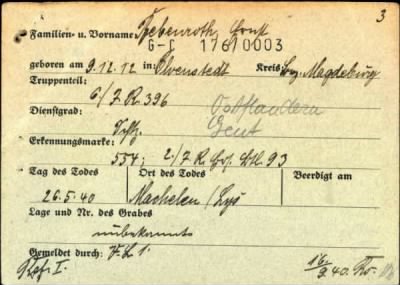 3
Familien- u. Vorname: Bebenroth, Ernst
G-C 176/0003
geboren am 9.12.12 in: Olvenstedt Kreis: Bz. Magdeburg
Truppenteil:
6/J.R. 396 Ostflandern
Dienstgrad: Gent
Schtz.
Erkennungsmarke:
554; 2/J.R. Btl. 93
Tag des Todes Ort des Todes Beerdigt am
26.5.40 Machelen/Lys
Lage und Nr. des Grabes
unbekannt
Gemeldet durch: V.L 1.
16.
I. 9.40.